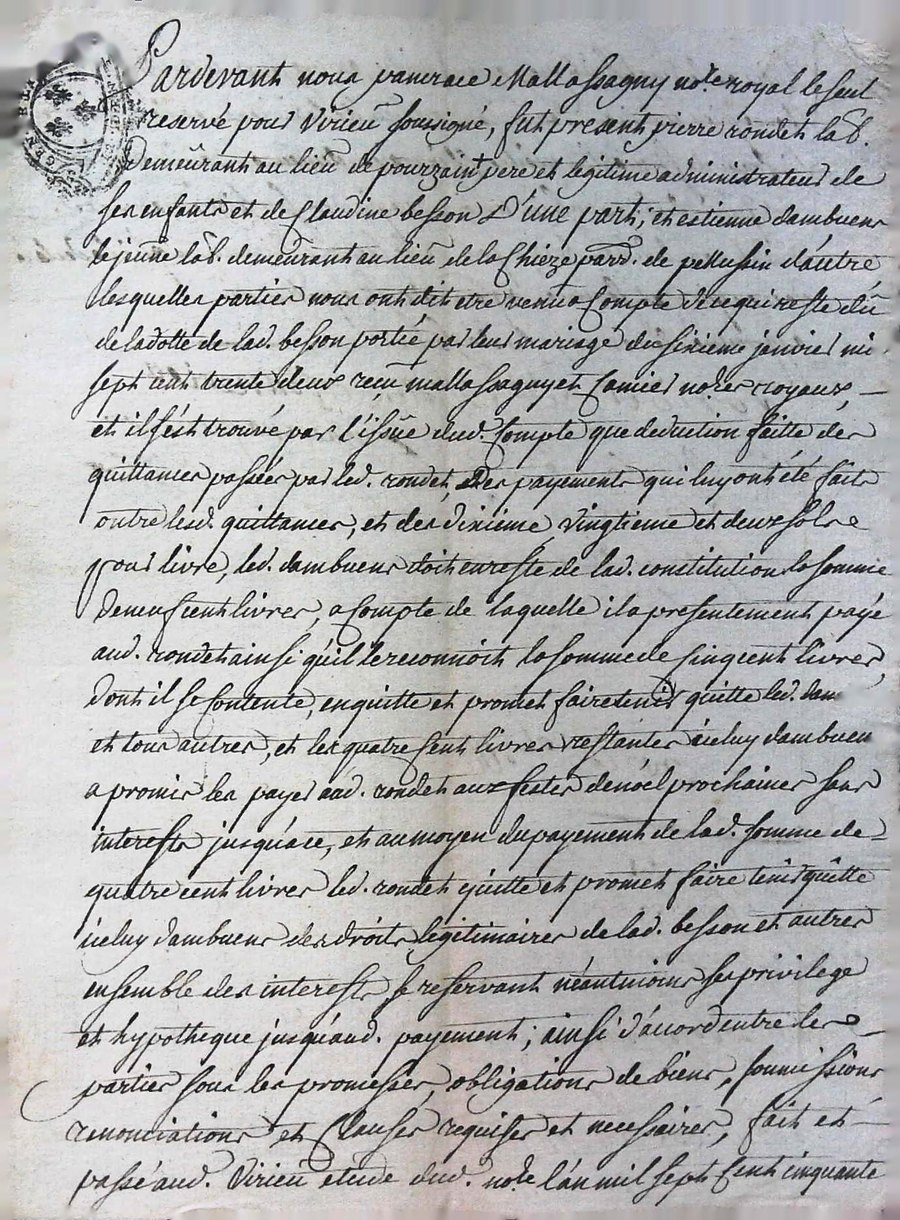 Pardevant nous pancrace Mallassagny no.re royal le seul
reservé pour Virieu soussigné, fut present pierre rondet lab.
demeurant au lieu de pourzain pere et legitime administrateur de
ses enfants et de Claudine besson d'une part; et estienne dambuens
le jeûne lab. demeurant au lieu de la Chieze parr. de pellussin d'autre
lesquelles parties nous ont dit etre venus a Compte de ce qui reste dû
de la dotte de lad. besson portée par leur mariage du sixieme janvier mi
sept cent trente deux reçu mallassagny et Camier no.res royaux,
et il s'est trouvé par l'issûe dud. Compte que deduction faitte des
quittances passées par led. rondet, des payements qui luy ont été faits
outre lesd. quittances, et des dixieme, vingtieme et deux sols
pour livre, led. dambuens doit en reste de lad. constitution la somme
de neuf cent livres, a compte de laquelle il a presentement payé
aud. rondet ainsi qu'il le reconnoit la somme de cinq cent livres,
dont il se Contente, en quitte et promet faire tenir quitte led. dam
et tous autres, et les quatre cent livres restantes iceluy dambuen
a promis les payer aud. rondet aux festes de noël prochaines sans
interests jusqu'a ce, et au moyen du payement de lad. somme de
quatre cent livres led. rondet quitte et promet faire tenir quitte
iceluy dambuens des droits legitimaires de lad. besson et autres
ensemble des interests, se reservant néantmoins ses privilege
et hypotheque jusqu'aud. payement; ainsi d'acord entre les
parties sous les promesses, obligations de biens, soumissions
renonciations et Clauses requises et necessaires, fait et
passé aud. Virieu etude dud. no.re l'an mil sept Cent cinquante